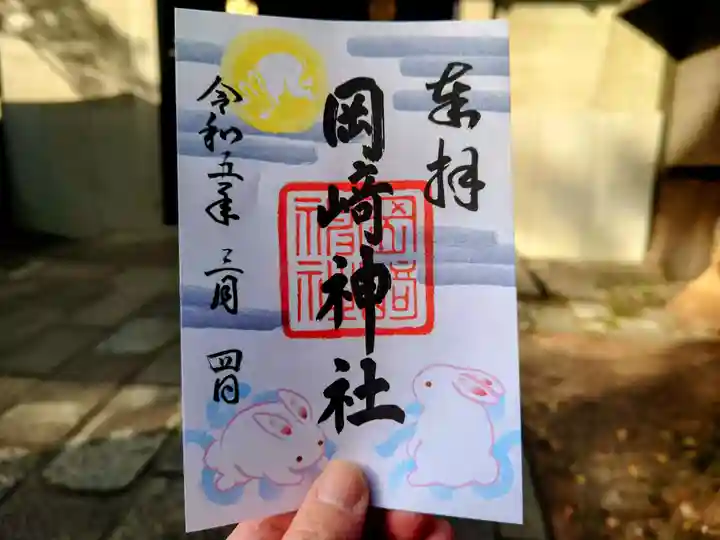 奉拝
岡﨑神社
岡﨑神社
令和五年三月四日